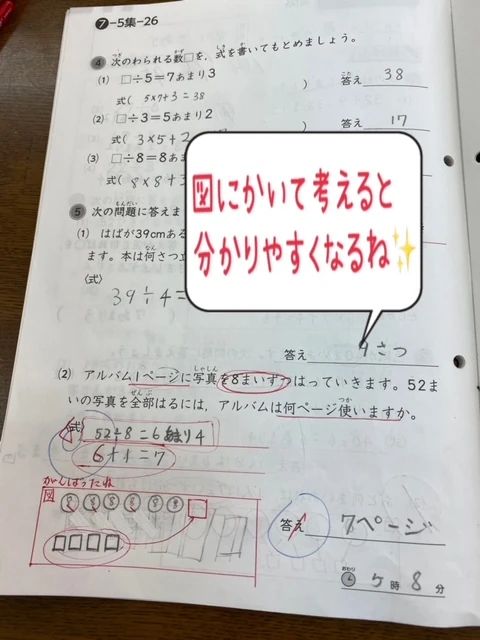 7-5集-26
4 次のわられる数□を、式を書いてもとめましょう。
(1) □÷5=7あまり3
式( 5×7+3=38 ) 答え 38
(2) □÷3=5あまり2
式( 3×5+2 答え 17
(3) □÷8=8あま
式( 8×8+3
図にかいて考えると
分かりやすくなるね✨
5 次の問題に答えま
(1) はばが39cmある
ます。本は何さつ立
〈式〉
39÷4=
答え 9さつ
(2) アルバム1ページに写真を8まいずつはっていきます。52ま
いの写真を全部はるには，アルバムは何ページ使いますか。
〈式〉 52÷8=6あまり4
6+1=7
がんばったね
図 8 8 8 8 8 8
答え 7ページ
おわり 5時8分